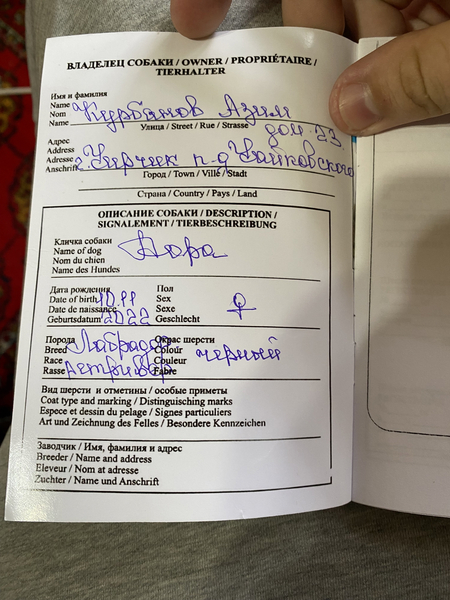 ВЛАДЕЛЕЦ СОБАКИ / OWNER / PROPRIÉTAIRE /
TIERHALTER
Имя и фамилия
Name Курбанов Азим
Nom
Name
Улица / Street / Rue / Strasse дом-23
Адрес
Address
Adresse г. Чирчик п-д Чайковского
Anschrift
Город / Town / Ville / Stadt
Страна / Country / Pays / Land
ОПИСАНИЕ СОБАКИ / DESCRIPTION /
SIGNALEMENT / TIERBESCHREIBUNG
Кличка собаки
Name of dog Нора
Nom du chien
Name des Hundes
Дата рождения Пол
Date of birth 10.11 Sex ♀
Date de naissance Sexe
Geburtsdatum 2022 Geschlecht
Порода Окрас шерсти
Breed Лабрадор Colour черный
Race Couleur
Rasse Ретривер Fabre
Вид шерсти и отметины / особые приметы
Coat type and marking / Distinguisching marks
Espece et dessin du pelage / Signes particuliers
Art und Zeichnung des Felles / Besondere Kennzeichen
Заводчик / Имя, фамилия и адрес
Breeder / Name and address
Eleveur / Nom at adresse
Zuchter / Name und Anschrift